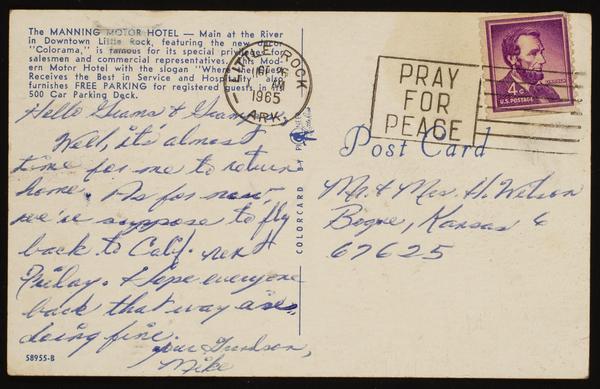 The MANNING MOTOR HOTEL — Main at the River
in Downtown Little Rock, featuring the new decor
"Colorama," is famous for its special privileges for
salesmen and commercial representatives. This Mod-
ern Motor Hotel with the slogan "Where the Guest
Receives the Best in Service and Hospitality" also
furnishes FREE PARKING for registered guests in its
500 Car Parking Deck.
LITTLE ROCK
1965
ARK.
PRAY
FOR
PEACE
4¢
U.S. POSTAGE
Post Card
Hello Grams & Gramps,
Well, it's almost
time for me to return
home. As for now
we're suppose to fly
back to Calif. next
Friday. Hope everyone
back that way are
doing fine.
your Grandson,
Mike
Mr & Mrs. H. Wilson
Bogue, Kansas
67625
COLORCARD BY
58955-B